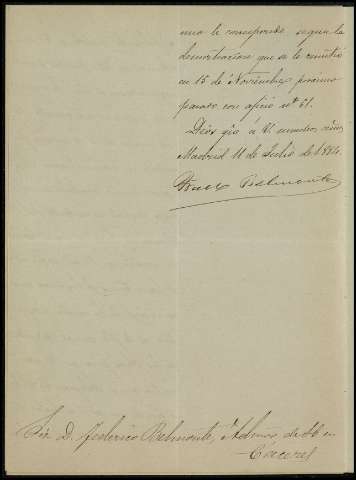 una le corresponde segun la
demostracion que se le remitió
en 15 de Noviembre proximo
pasado con oficio nº 61.
Dios gūe á V. muchos años
Madrid 11 de Julio de 1884.
Belmonte
Sor. D. Federico Belmonte, de en
Cáceres